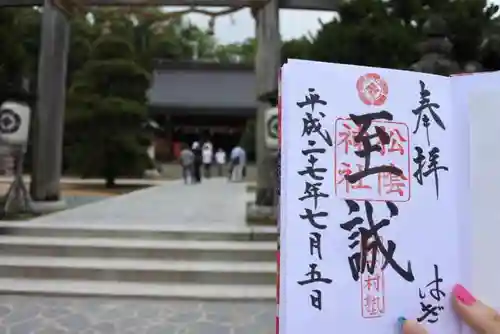 奉拝
はぎ
至誠
松陰
神社
村塾
平成二十七年七月五日